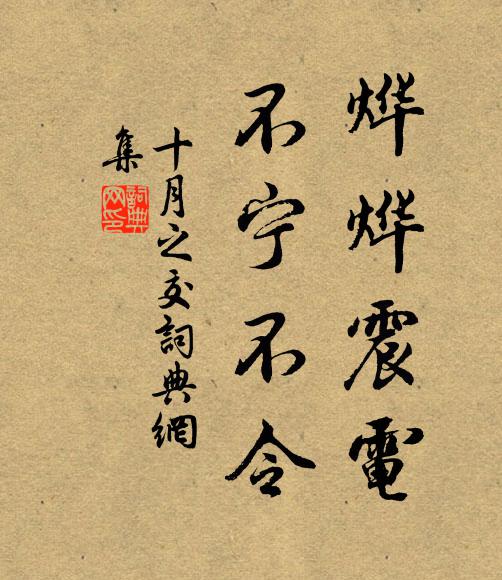 烨烨震電
不宁不令
十月之交詞典網
集
詞典网印